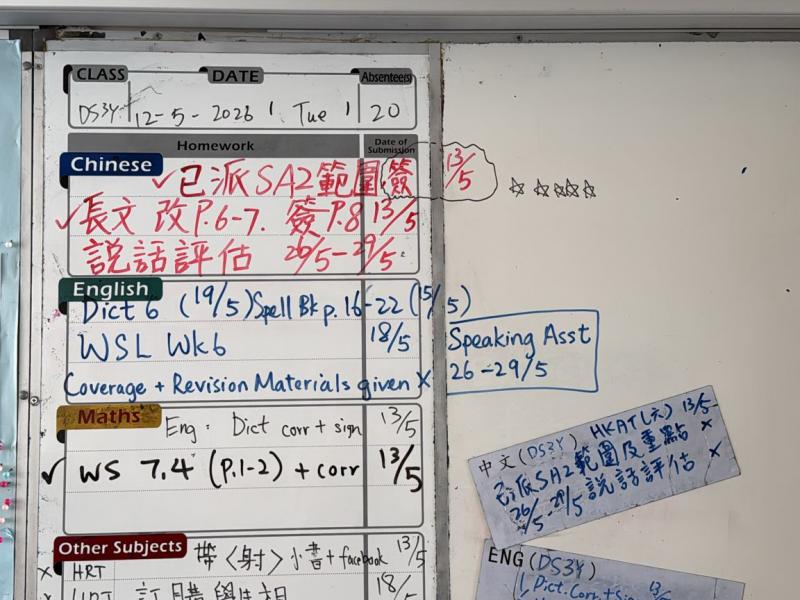 CLASS DATE Absentee(s)
DS3Y 12-5-2026 Tue 20
Homework Date of Submission
Chinese
✓已派SA2範圍 簽 13/5
✓長文 改P.6-7. 簽P.8 13/5
説話評估 26/5-29/5
English
Dict 6 (19/5) Spell Bk p.16-22 (15/5)
WSL Wk6 18/5
Coverage + Revision Materials given X
Speaking Asst
26-29/5
Maths
Eng: Dict corr + sign 13/5
✓ WS 7.4 (P.1-2) + corr 13/5
Other Subjects
帶〈射〉小書+facebook 13/5
x HRT
訂購學生相 18/5
中文(DS3Y) HKAT(六) 13/5
已派SA2範圍及重點 x
26/5-29/5 説話評估 x
ENG (DS3Y)
Dict. Corr + Sign 13/5